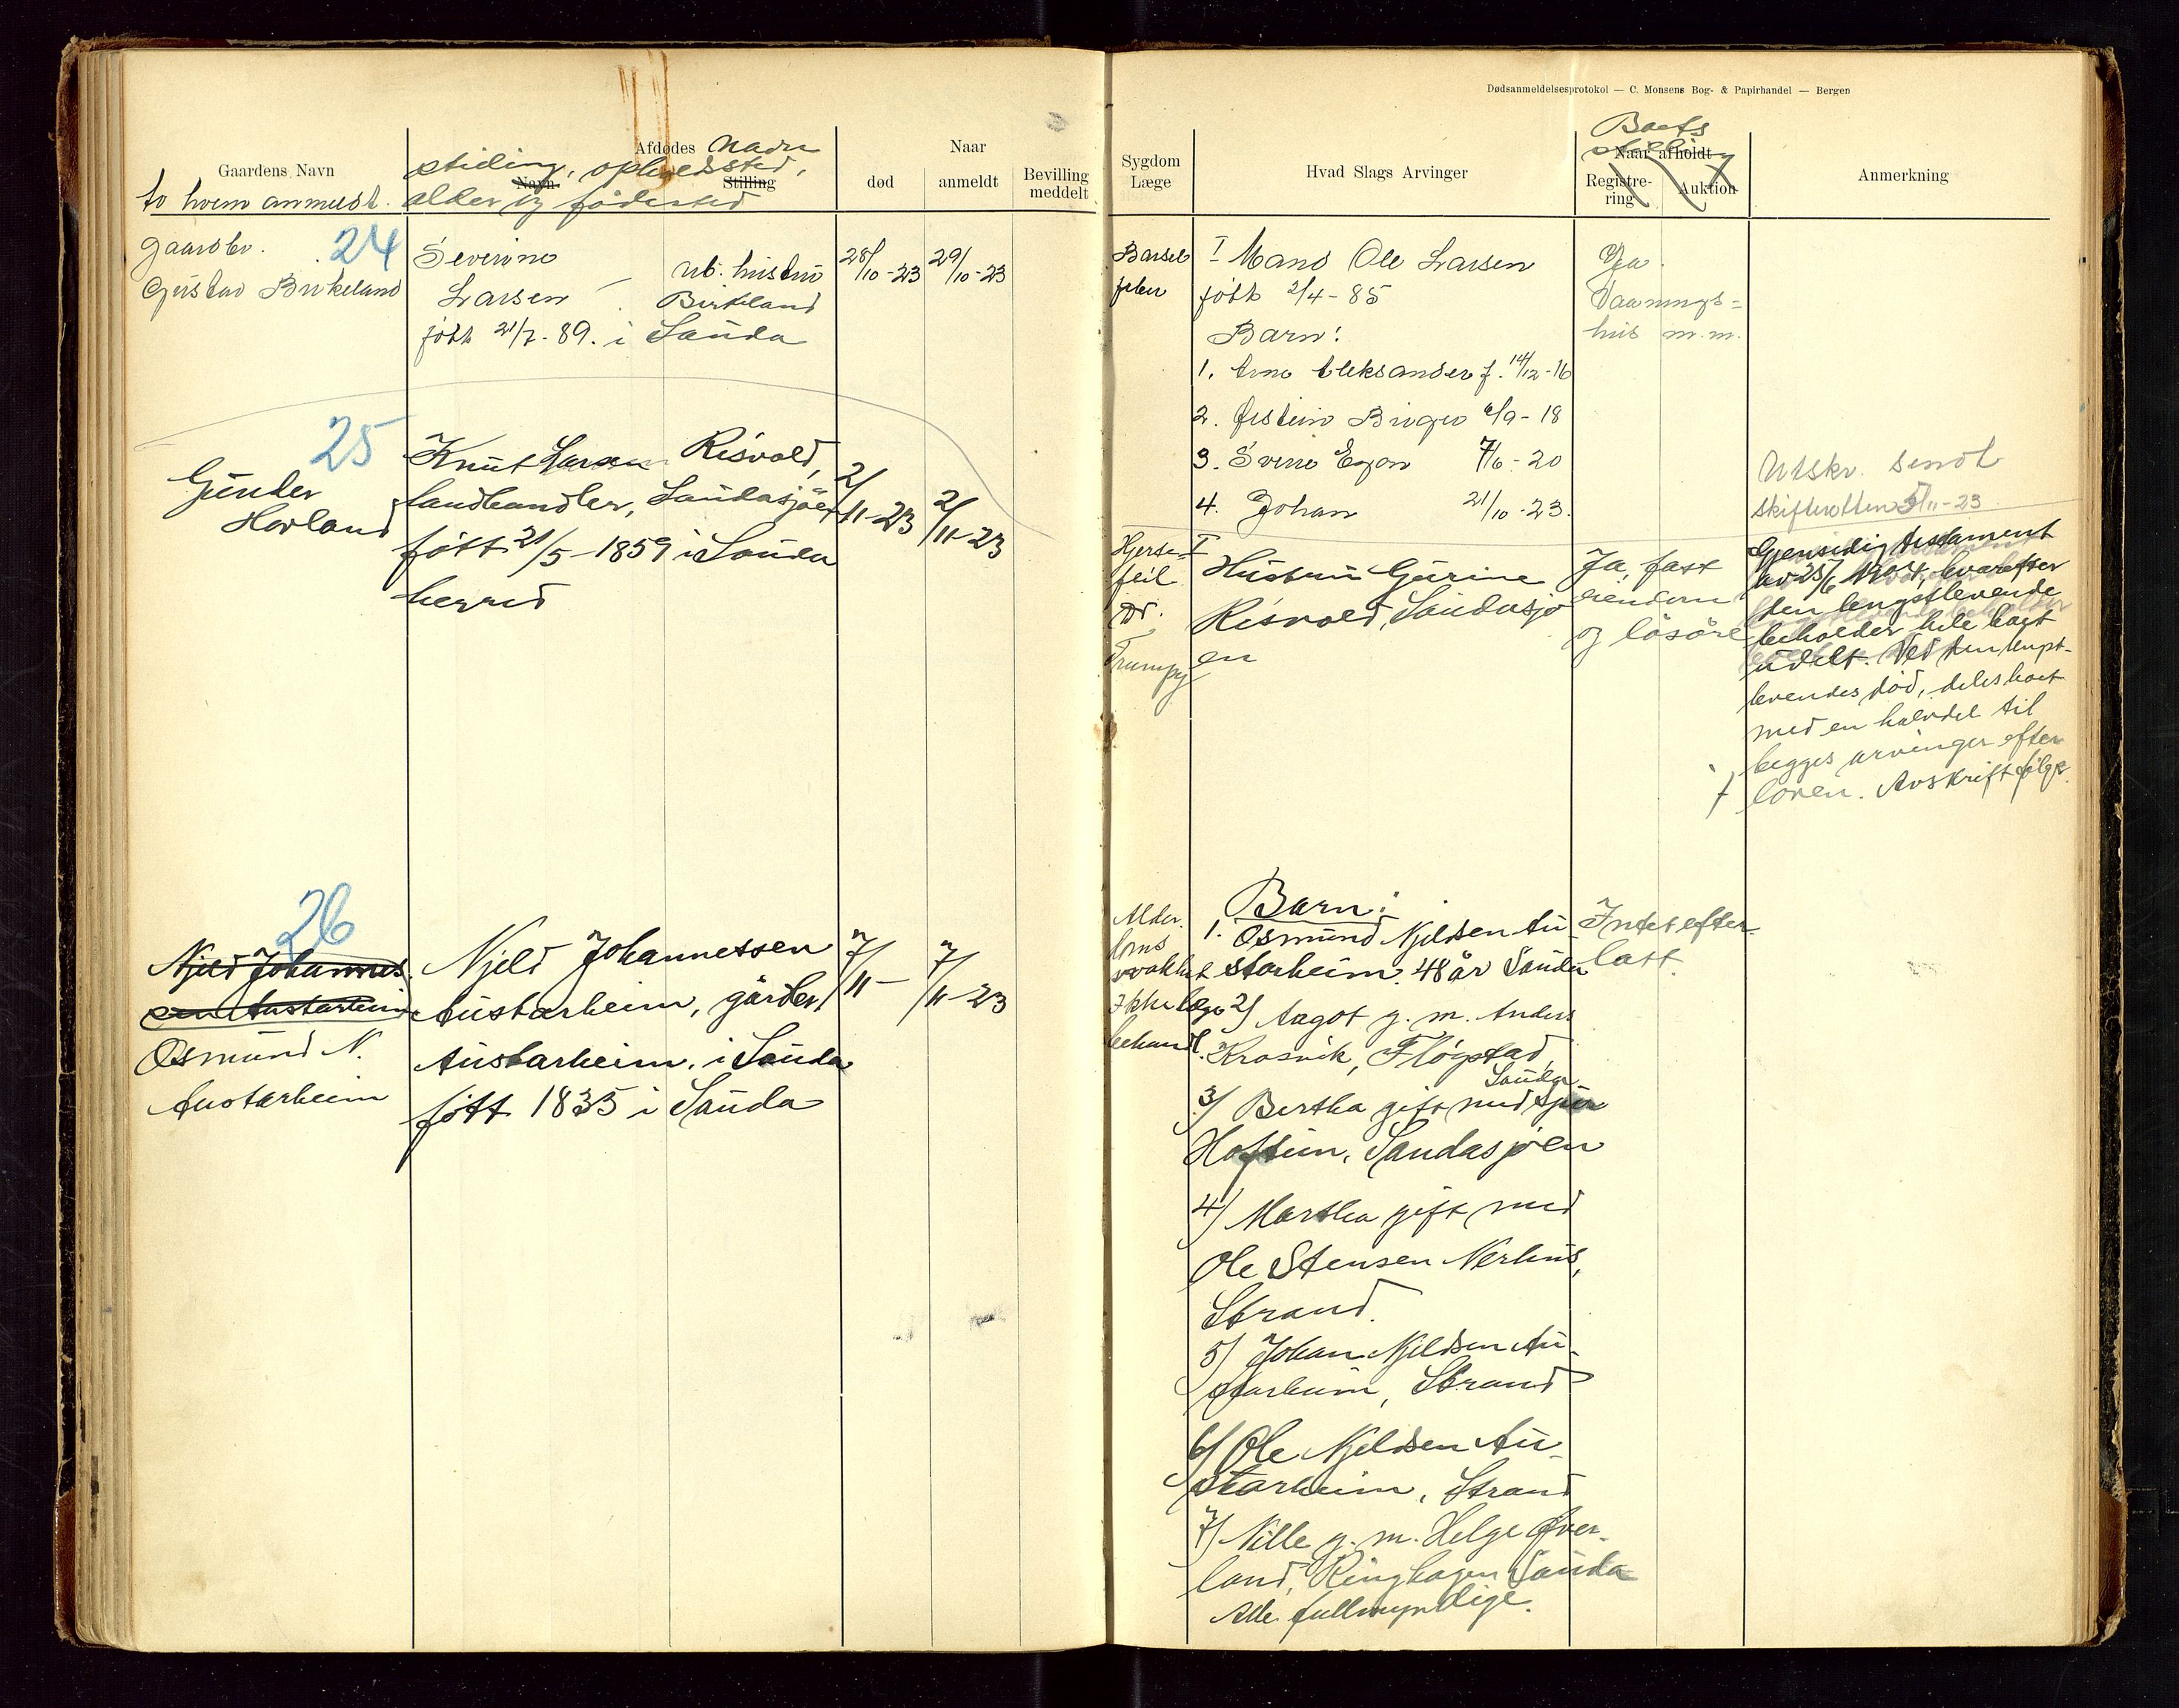 Dødsanmeldelsesprotokol — C. Monsens Bog- & Papirhandel — Bergen
Gaardens Navn
hvem anmeldt.
Afdødes Navn
stilling, opholdssted,
Navn Stilling
alder og födested
Naar
død anmeldt
Bevilling
meddelt
Sygdom
Læge
Hvad Slags Arvinger
Boets
stilling
Naar afholdt
Registre-
ring
Auktion
Anmerkning
24
Gaardbr.
Gustav Birkeland
Severine
Larsen
hustru
Birkeland
født 21/7-89. i Sauda
28/10-23
29/10-23
Barsel
feber
I Mand Ole Larsen
født 2/4-85
Barn:
1. Arne Aleksander f. 14/12-16
2. Øistein Birger 6/9-18
3. Sverre Egon 7/6-20
4. Johan 21/10-23.
Ja.
Vaanings=
hus m.m.
Utskr. sendt
skifteretten 5/11-23
25
Gunder
Hovland
Knut Larsen Risvold,
landhandler, Saudasjöen
födt 21/5-1859 i Sauda
herred
2/11-23
2/11-23
Hjerte-
feil
Dr.
Trumpy
I
Hustru Gurine
Risvold, Saudasjö
en
Ja, fast
eiendom
og lösöre
Gjensidig testament
av 25/6 1904, hvorefter
den lengstlevende
beholder hele boet
udelt. Ved den lengst-
levendes död, deles boet
med en halvdel til
begges arvinger efter
loven. Avskrift følger.
26
Njeld Johannes
sen Austarheim
Osmund N.
Austarheim
Njeld Johannessen
Austarheim, gårdbr.
Austarheim, i Sauda
födt 1835 i Sauda
7/11-
7/11-23
Alder
doms
svakhet
Ikke læge
behandl.
Barn:
1. Osmund Njeldsen Au-
starheim. 48 år Sauda
2) Aagot g. m. Anders
Krosvik, Flögstad,
Sauda
3) Bertha gift med
Hofseim, Saudasjöen
4) Martha gift med
Ole Stensen Nerhus,
Strand.
5) Johan Njeldsen Au-
starheim, Strand
6) Ole Njeldsen Au-
starheim, Strand
7) Nille g. m. Helge Øver-
land, Ringhagen Sauda
Alle fullmyndige.
Intet efter-
latt.